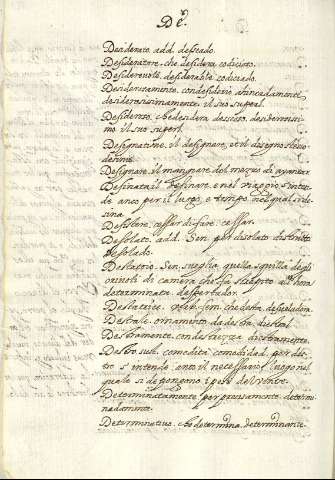 De.
Desiderato. add. desseado.
Desideratore. che desidera codicioso.
Desiderevole. desiderable. codiciado.
Desiderosamente. con desiderio. ahincadamente
desiderosissimamente. il suo superl.
Desideroso. che desidera desseoso. desiderosis.
simo il suo superl.
Designatione. il designare, et il disegno stesso
Designare. il
Desinata. il desinare. e nel viaggio s'inten
de anco per il luogo, e tempo nel qual si de
sina
Desistere. cessar di fare. cessar.
Desolato. add. Sen. per disolato distrutto
desolado.
Destatoio. Sen. sveglia, quella squilla degli
orivoli di camera che fa strepito all' hora
determinata. despertador.
Destatrice. verb. fem. che desta. despertadora.
Destrale. ornamento da destra. diestral
Destramente. con destrezza. diestramente.
Destro sust. comodità. comodidad. per des.
tro s' intende anco il necessario, luogo nel
quale si depongono i pesi del ventre.
Determinatamente. precisamente. determi
nadamente.
Determinativo. che determina. determinante.